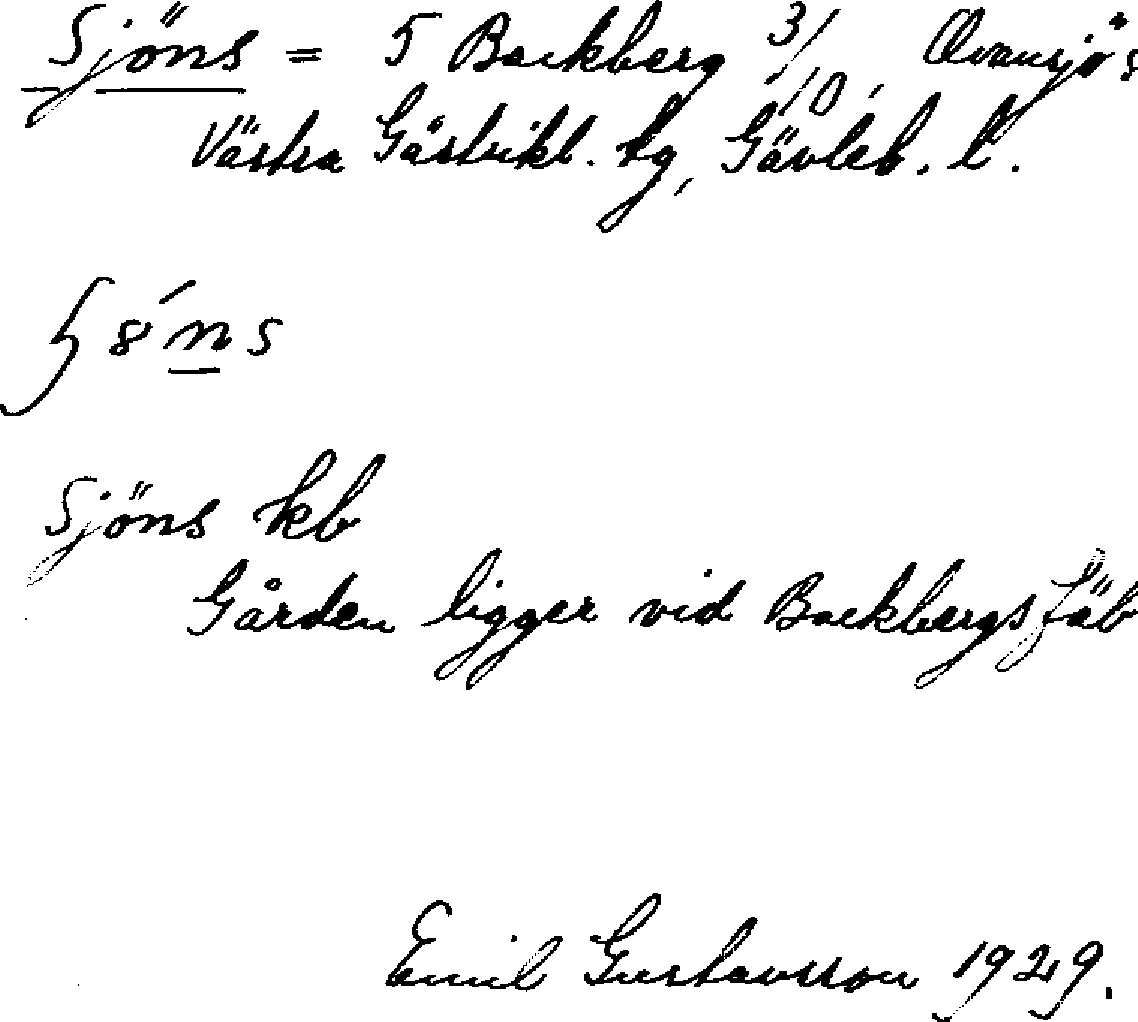 Sjöns = 5 Backberg 3/10, Ovansjö s
Västra Gästrikl. tg, Gävleb. l.
Sjöns kb
Gården ligger vid Backbergs fäb
Emil Gustavsson 1929.